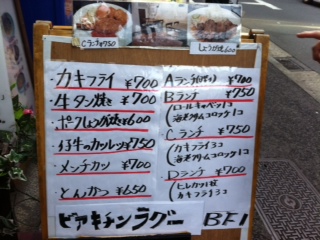 Cランチ ¥750
しょうが焼 ¥600
・カキフライ ¥700
・牛タン焼き ¥700
・ポークしょうが焼 ¥600
・牛のカルレッツ ¥750
・メンチカツ ¥700
・とんかつ ¥650
Aランチ ¥700
Bランチ ¥750
ロールキャベツ1コ
海老クリームコロッケ1コ
Cランチ ¥750
カキフライ3コ
海老クリームコロッケ1コ
Dランチ ¥700
ヒレカツ1枚
カキフライ3コ
ビアキッチンラグー BF1